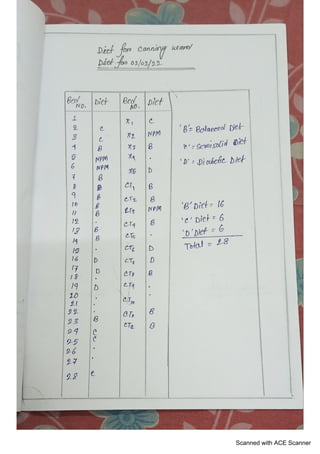 Diet for Canning ward
Diet for 03/03/22
Bed No. Diet Bed No. Diet
1 X1 C
2 C X2 NPM
3 C X3 B
4 B X4 .
5 NPM X5 D
6 NPM
7 B CT1 B
8 B CT2 B
9 B CT3 NPM
10 B CT4 B
11 B
12 .
13 B
14 B D
15 . D
16 D B
17 D
18 .
19 D
20 .
21 .
22 . B
23 B B
24 C
25 C
26 .
27 .
28 C
'B' = Balanced Diet
'C' = Semisolid Diet
'D' = Diabetic Diet
'B' Diet = 16
'C' Diet = 6
'D' Diet = 6
Total = 28
Scanned with ACE Scanner